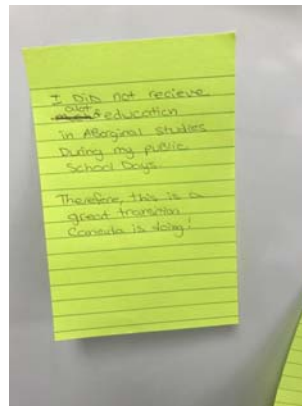 I DiD not recieve
alot of education
in Aborginal studies
During my public
School Days.
Therefore, this is a
great transition
Canada is doing!